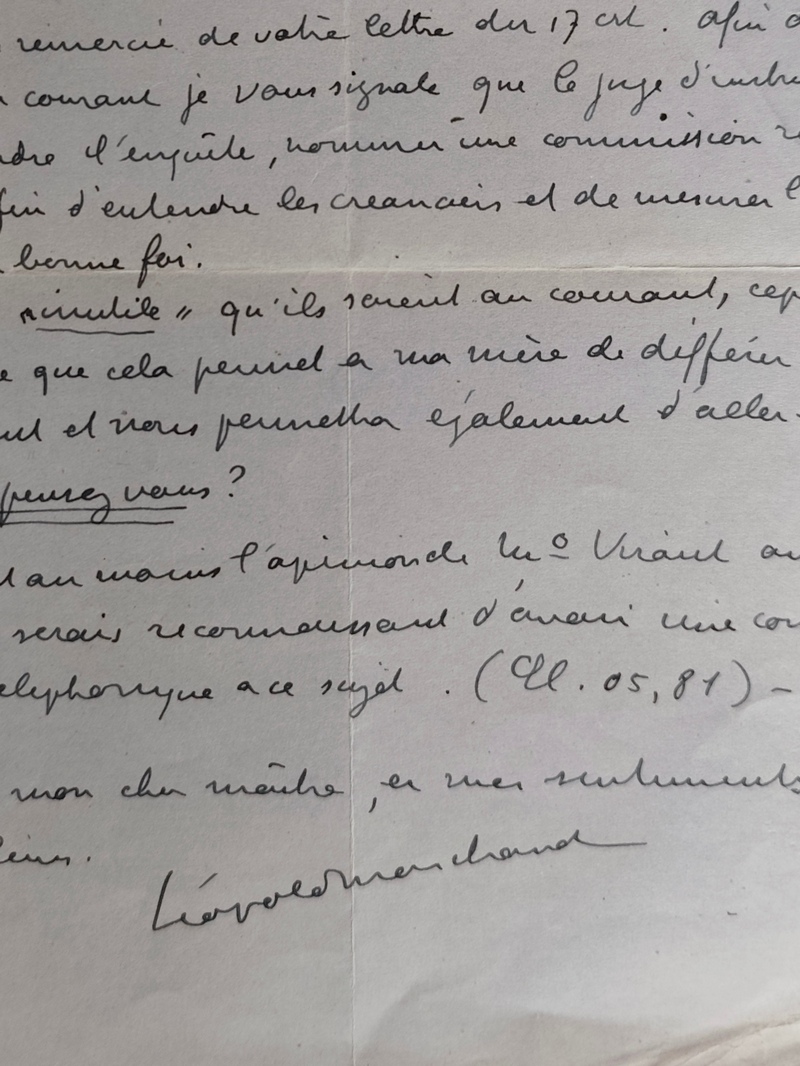 remercie de votre lettre du 17 crt. Afin
courant je vous signale que le juge d'instru
dre l'enquête, nommer une commission r
fin d'entendre les creanciers et de mesurer l
bonne foi.
"inutile" qu'ils soient au courant, cep
e que cela permet a ma mère de différer
et nous permettra également d'aller
pensez vous?
au moins l'opinion de Mº
serais reconnaissant d'avoir une con
elephonique a ce sujet. (El. 05,81) -
mon cher maître, en mes sentiments
Léopold Marchand